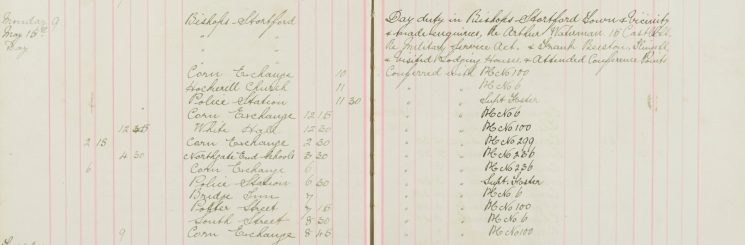 Monday 9 Bishops-Stortford Day duty in Bishops Stortford Town & Vicinity
May 15th " " & made enquiries, Re Arthur Wateman 15 Castle St,
Day " " Re Military Service Act. & Frank Beeston,
& visited Lodging Houses & Attended Conference Points
Corn Exchange 10 Conferred with PC No 100
Hockerill Church 11 " " PC No 6
Police Station 11 30 " " Supt. Foster
Corn Exchange 12 15 " " PC No 6
12 45 White Hall 12 30 " " PC No 100
2 15 Corn Exchange 2 30 " " PC No 299
4 30 Northgate End Schools 3 30 " " PC No 236
6 Corn Exchange 6 " " PC No 236
Police Station 6 30 " " Supt. Foster
Bridge Inn 7 " " PC No 6
Potter Street 7 15 " " PC No 100
South Street 8 30 " " PC No 6
9 Corn Exchange 8 45 " " PC No 100